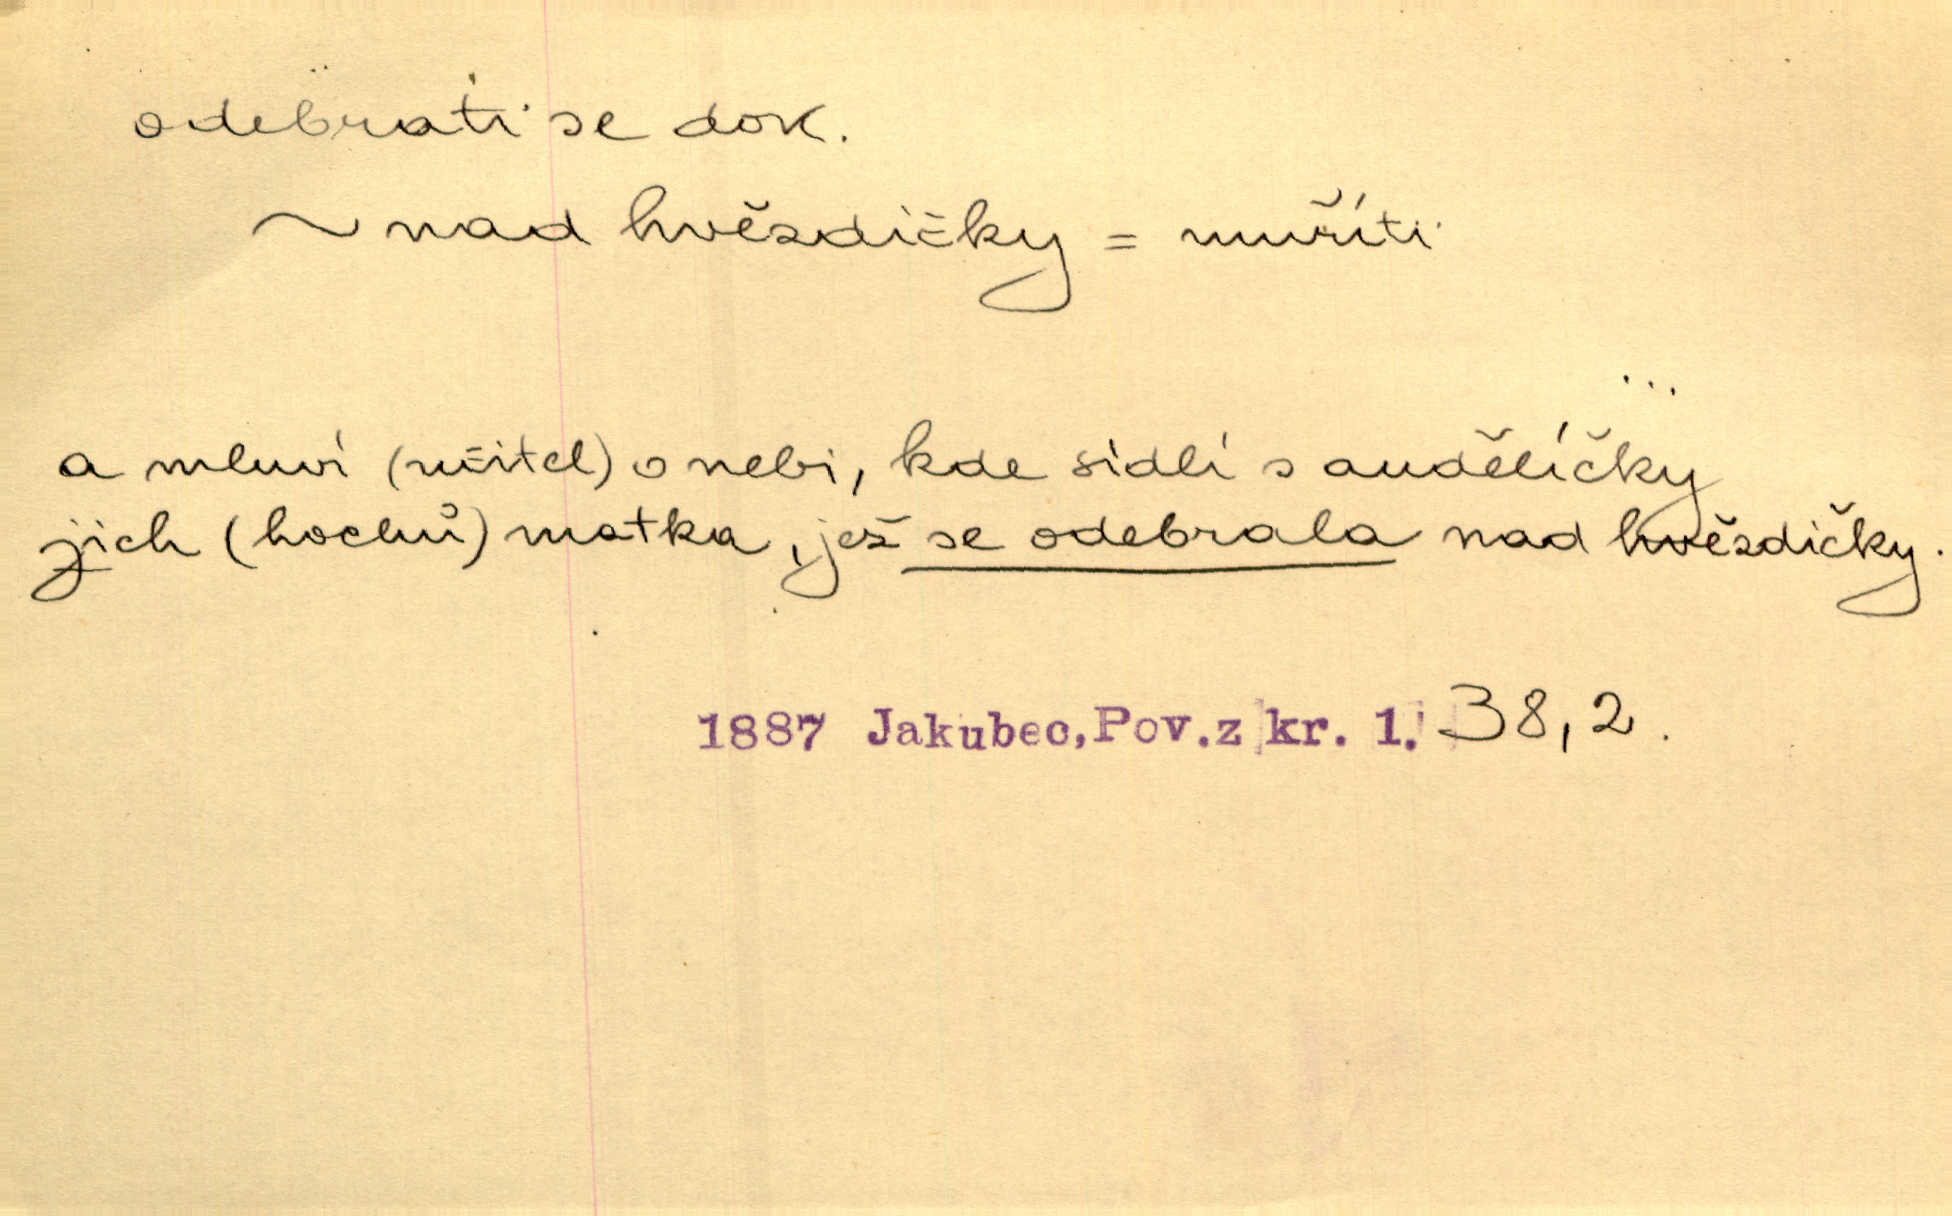 odebrati se dok.
~ nad hvězdičky = umříti
a mluví (učitel) o nebi, kde sídlí s andělíčky
jich (hochů) matka, jež se odebrala nad hvězdičky.
1887 Jakubec, Pov. z kr. 1. 38,2.